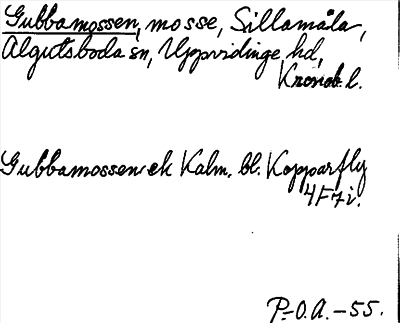 Gubbamossen, mosse, Sillamåla,
Algutsboda sn, Uppvidinge hd,
Kronob. l.
Gubbamossen ek Kalm. bl. Kopparfly
4F7i.
P.-O.A.-55.